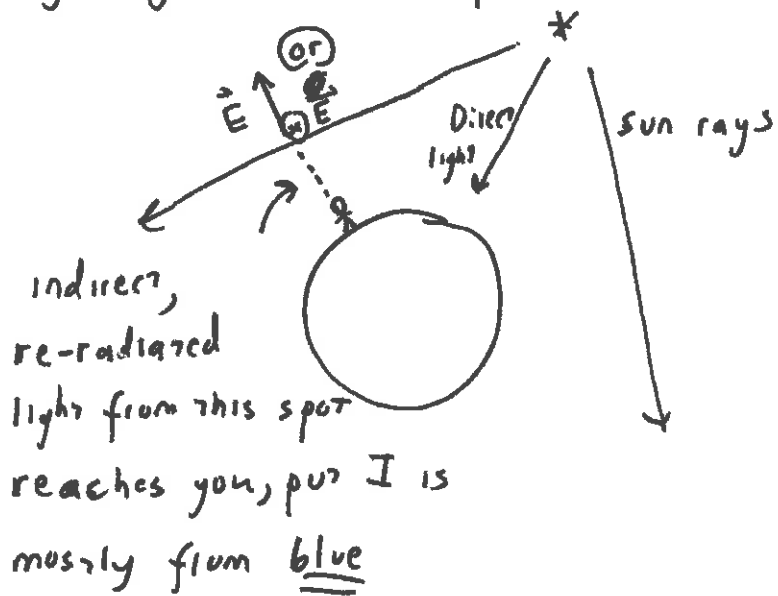 or
E
E
Direct
light
sun rays
indirect,
re-radiated
light from this spot
reaches you, but I is
mostly from blue